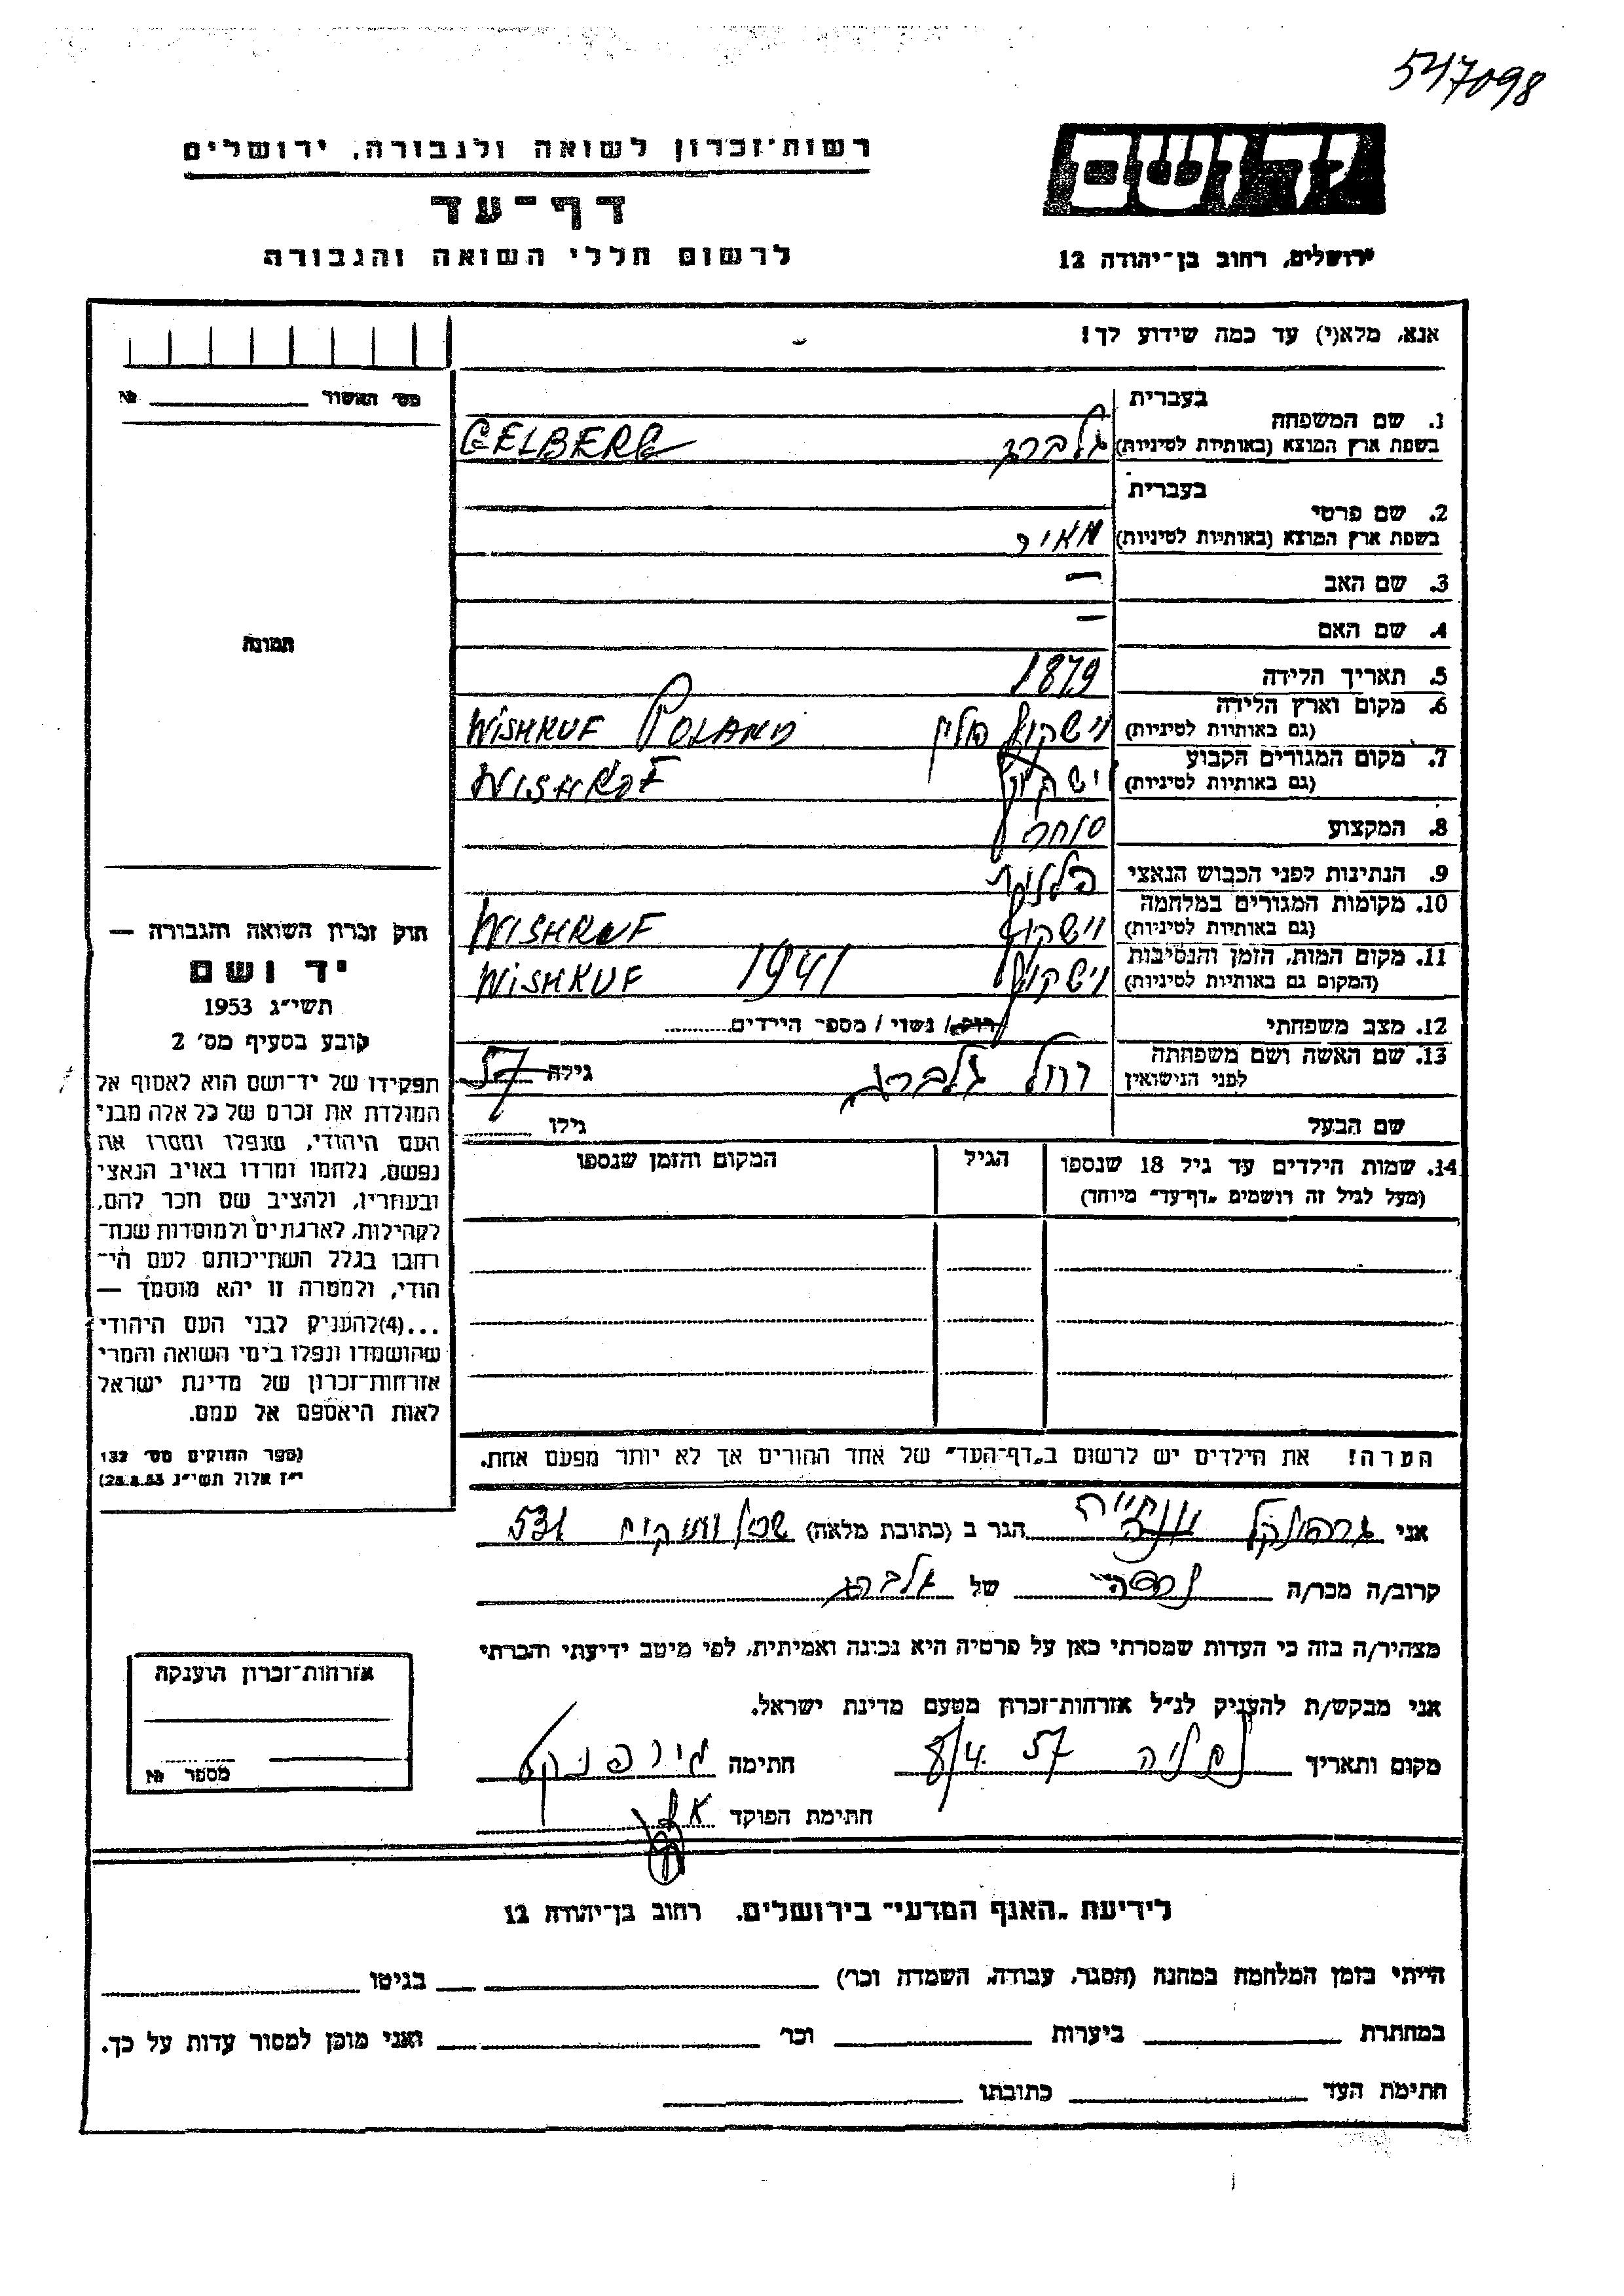 547098
ידושם
רשות־זכרון לשואה ולגבורה, ירושלים
דף־עד
ירושלים, רחוב בן־יהודה 12
לרשום חללי השואה והגבורה
אנא, מלא(י) עד כמה שידוע לך!
מס׳ האשור №
בעברית
1. שם המשפחה
בשפת ארץ המוצא (באותיות לטיניות) גלברג GELBERG
בעברית
2. שם פרטי
בשפת ארץ המוצא (באותיות לטיניות) מאיר
3. שם האב —
4. שם האם —
תמונה
5. תאריך הלידה 1879
6. מקום וארץ הלידה
(גם באותיות לטיניות) וישקוף פולין WISHKUF POLAND
7. מקום המגורים הקבוע
(גם באותיות לטיניות) וישקוף WISHKUF
8. המקצוע סוחר
9. הנתינות לפני הכבוש הנאצי פולנית
10. מקומות המגורים במלחמה
(גם באותיות לטיניות) וישקוף WISHKUF
11. מקום המות, הזמן והנסיבות
(המקום גם באותיות לטיניות) וישקוף 1941 WISHKUF
12. מצב משפחתי רווק / נשוי / מספר הילדים
13. שם האשה ושם משפחתה
לפני הנישואין רחל גלברג גילה 57
שם הבעל גילו
14. שמות הילדים עד גיל 18 שנספו הגיל המקום והזמן שנספו
(מעל לגיל זה רושמים „דף־עד" מיוחד)
חוק זכרון השואה והגבורה —
יד ושם
תשי״ג 1953
קובע בסעיף מס׳ 2
תפקידו של יד־ושם הוא לאסוף אל
המולדת את זכרם של כל אלה מבני
העם היהודי, שנפלו ומסרו את
נפשם, נלחמו ומרדו באויב הנאצי
ובעוזריו, ולהציב שם וזכר להם,
לקהילות, לארגונים ולמוסדות שנח־
רבו בגלל השתייכותם לעם הי־
הודי, ולמטרה זו יהא מוסמך —
...(4)להעניק לבני העם היהודי
שהושמדו ונפלו בימי השואה והמרי
אזרחות־זכרון של מדינת ישראל
לאות היאספם אל עמם.
(ספר החוקים מס׳ 132
י״ז אלול תשי״ג 28.8.53)
הערה! את הילדים יש לרשום ב„דף־העד" של אחד ההורים אך לא יותר מפעם אחת.
אני הגר ב (כתובת מלאה) 531
קרוב/ה מכר/ה של גלברג
מצהיר/ה בזה כי העדות שמסרתי כאן על פרטיה היא נכונה ואמיתית, לפי מיטב ידיעתי והכרתי
אני מבקש/ת להעניק לנ״ל אזרחות־זכרון מטעם מדינת ישראל.
מקום ותאריך נתניה 8/4 57 חתימה
חתימת הפוקד
אזרחות־זכרון הוענקה
מספר №
לידיעת „האגף המדעי" בירושלים, רחוב בן־יהודה 12
הייתי בזמן המלחמה במחנה (הסגר, עבודה, השמדה וכו׳) בגיטו
במחתרת ביערות וכו׳ ואני מוכן למסור עדות על כך.
חתימת העד כתובתו